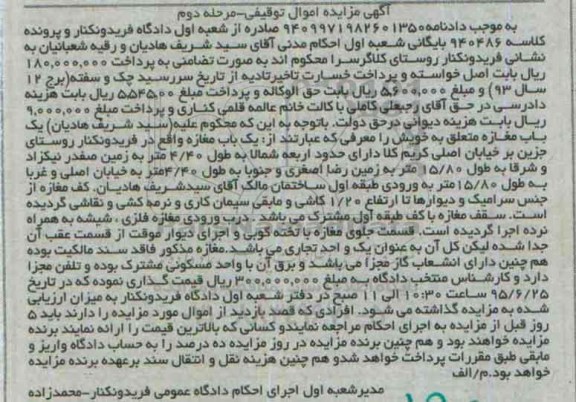 آگهی مزایده اموال توقیفی-مرحله دوم
به موجب دادنامه۹۴۰۹۹۷۱۹۸۲۶۰۱۳۵۰ صادره از شعبه اول دادگاه فریدونکنار و پرونده
کلاسه ۹۴۰۴۸۶ بایگانی شعبه اول احکام مدنی آقای سید شریف هادیان و رقیه شعبانیان به
نشانی فریدونکنار روستای کلاگرسرا محکوم اند به صورت تضامنی به پرداخت ۱۸۰,۰۰۰,۰۰۰
ریال بابت اصل خواسته و پرداخت خسارت تاخیرتادیه از تاریخ سررسید چک و سفته(برج ۱۲
سال ۹۳) و مبلغ ۵,۶۰۰,۰۰۰ ریال بابت حق الوکاله و پرداخت مبلغ ۵۵۴۵,۰۰ ریال بابت هزینه
دادرسی در حق آقای رجبعلی کاملی با کالت خانم عالمه قلمی کناری و پرداخت مبلغ ۹,۰۰۰,۰۰۰
ریال بابت هزینه دیوانی درحق دولت. باتوجه به این که محکوم علیه(سید شریف هادیان) یک
باب مغازه متعلق به خویش را معرفی که عبارتند از: یک باب مغازه واقع در فریدونکنار روستای
جزین بر خیابان اصلی کریم کلا دارای حدود اربعه شمالا به طول ۴/۴۰ متر به زمین صفدر نیکزاد
و شرقا به طول ۱۵/۸۰ متر به زمین رضا اصغری و جنوبا به طول ۴/۴۰متر به خیابان اصلی و غربا
به طول ۱۵/۸۰متر به ورودی طبقه اول ساختمان مالک آقای سیدشریف هادیان. کف مغازه از
جنس سرامیک و دیوارها تا ارتفاع ۱/۲۰ کاشی و مابقی سیمان کاری و نرمه کشی و نقاشی گردیده
است. سقف مغازه با کف طبقه اول مشترک می باشد . درب ورودی مغازه فلزی ، شیشه به همراه
نرده اجرا گردیده است. قسمت جلوی مغازه با تخته کوبی و اجرای دیوار موقت از قسمت عقب آن
جدا شده لیکن کل آن به عنوان یک و احد تجاری می باشد.مغازه مذکور فاقد سند مالکیت بوده
هم چنین دارای انشعاب گاز مجزا می باشد و برق آن با واحد مسکونی مشترک بوده و تلفن مجزا
دارد و کارشناس منتخب دادگاه به مبلغ ۳۰۰,۰۰۰,۰۰۰ ریال قیمت گذاری نموده که در تاریخ
۹۵/۶/۲۵ ساعت ۱۰:۳۰ الی ۱۱ صبح در دفتر شعبه اول دادگاه فریدونکنار به میزان ارزیابی
شده به مزایده گذاشته می شود. افرادی که قصد بازدید از اموال مورد مزایده را دارند باید ۵
روز قبل از مزایده به اجرای احکام مراجعه نمایندو کسانی که بالاترین قیمت را ارائه نمایند برنده
مزایده خواهند بود و هم چنین برنده مزایده در روز مزایده ده درصد را به حساب دادگاه واریز و
مابقی طبق مقررات پرداخت خواهد شدو هم چنین هزینه نقل و انتقال سند برعهده برنده مزایده
خواهد بود.م/الف
مدیرشعبه اول اجرای احکام دادگاه عمومی فریدونکنار-محمدزاده